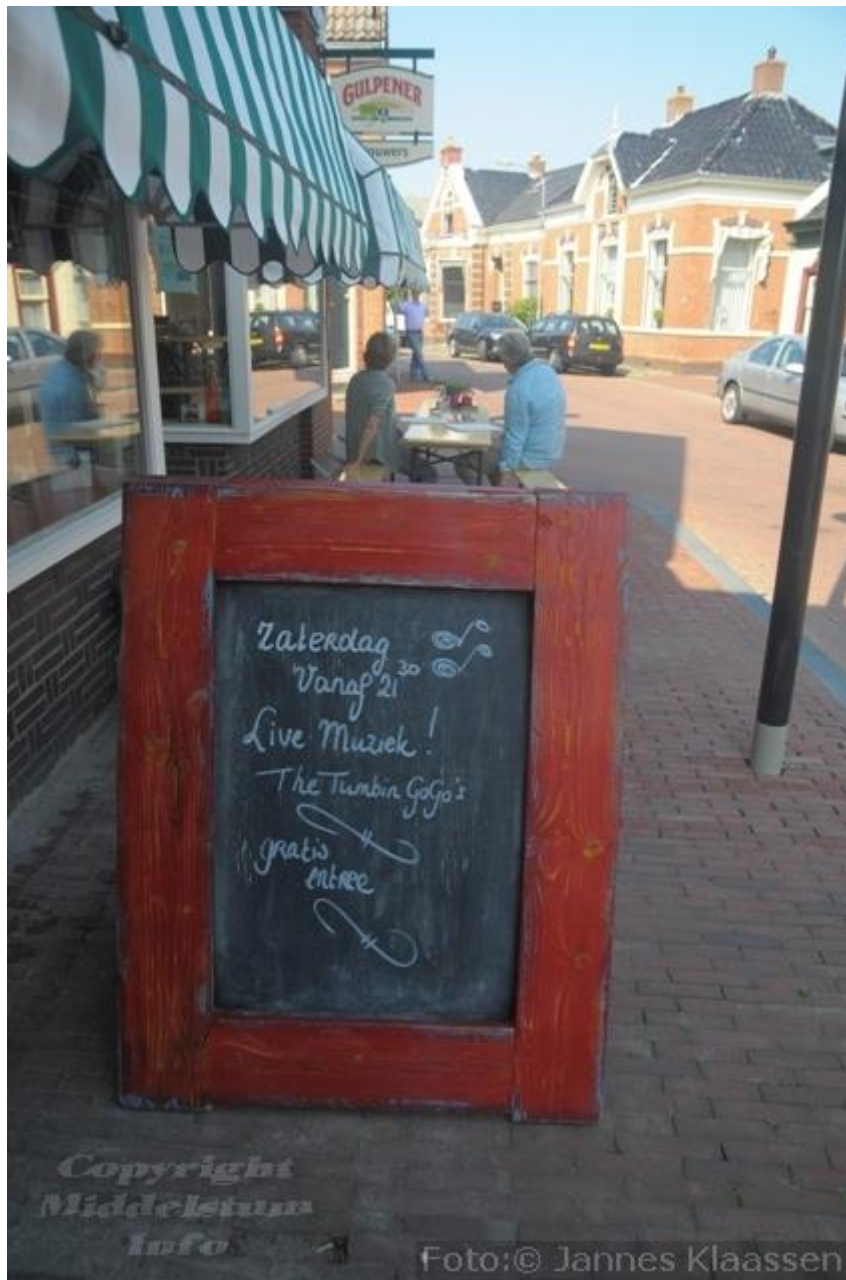 GULPENER
Zaterdag
Vanaf 21 30
Live Muziek!
The Tumbin GoGo's
gratis
entree
Copyright
Middelstum
Info
Foto:© Jannes Klaassen